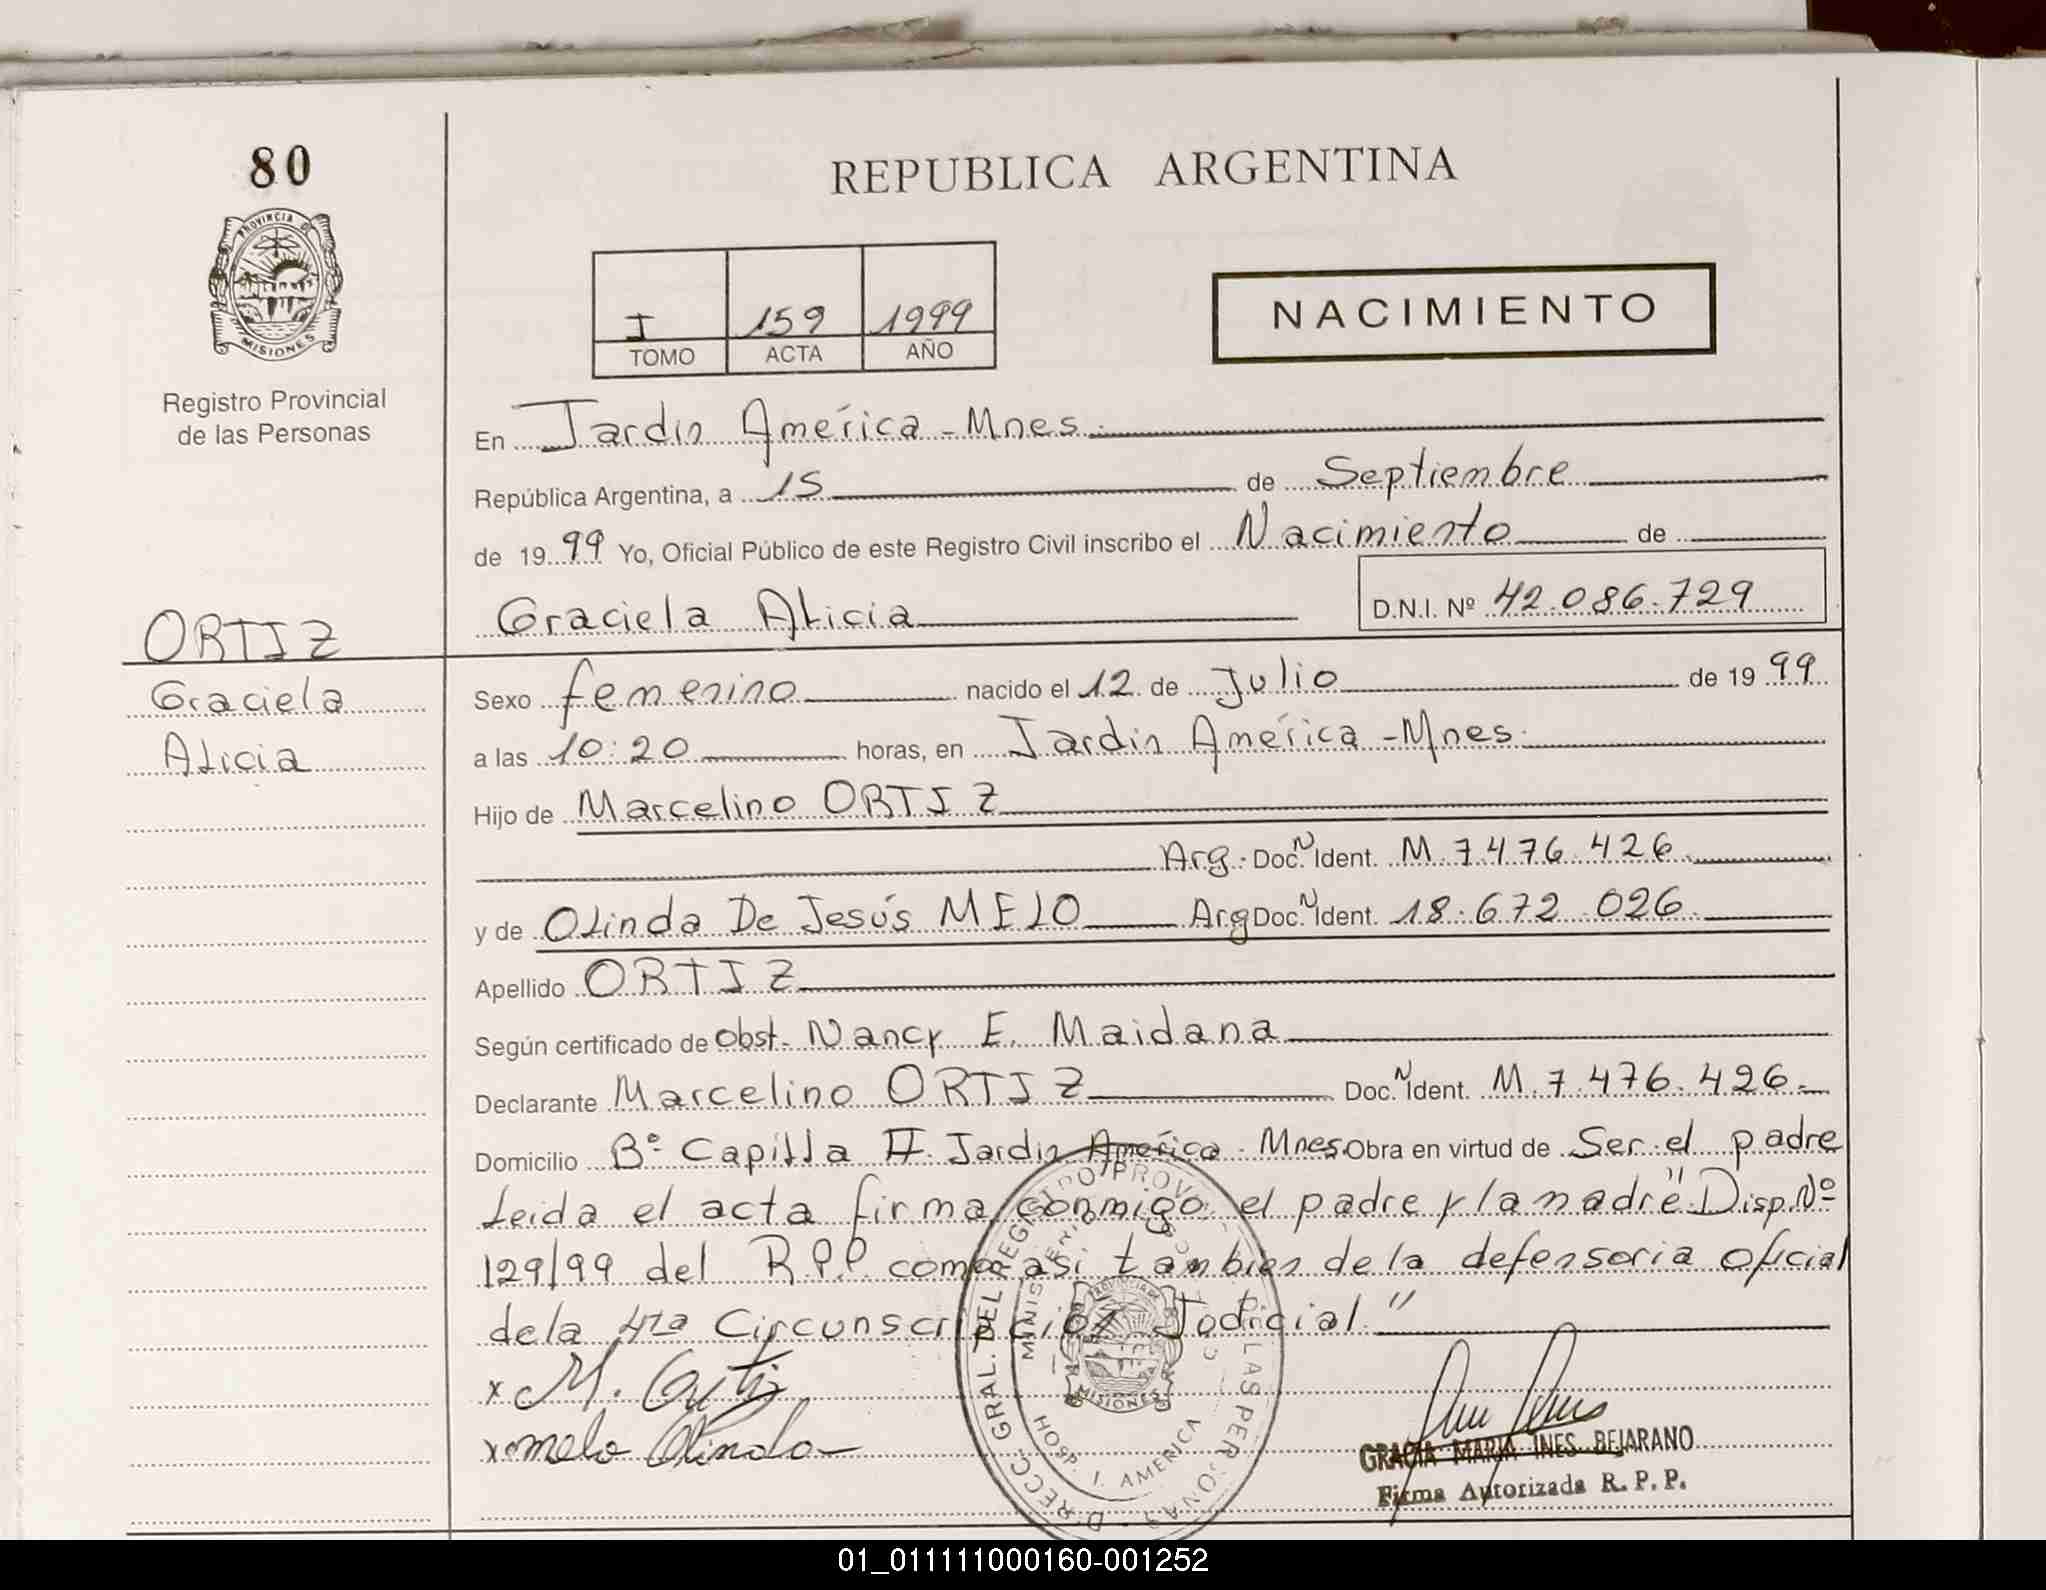 80
REPUBLICA ARGENTINA
PROVINCIA DE
MISIONES
I 159 1999
TOMO ACTA AÑO
NACIMIENTO
Registro Provincial
de las Personas
En Jardin América - Mnes.
República Argentina, a 15 de Septiembre
de 1999 Yo, Oficial Público de este Registro Civil inscribo el Nacimiento de
Graciela Alicia D.N.I. Nº 42.086.729
ORTIZ
Graciela
Alicia
Sexo femenino nacido el 12 de Julio de 1999
a las 10:20 horas, en Jardin América - Mnes.
Hijo de Marcelino ORTIZ
Arg. Doc. N Ident. M 7.476.426
y de Olinda De Jesús MELO Arg Doc. N Ident. 18.672.026
Apellido ORTIZ
Según certificado de obst. Nancy E. Maidana
Declarante Marcelino ORTIZ Doc. N Ident. M.7.476.426.
Domicilio Bº Capilla II Jardin América - Mnes. Obra en virtud de Ser el padre
leida el acta firma conmigo el padre y la madre "Disp. Nº
129/99 del R.P.P. como asi tambien de la defensoria oficial
de la 4ta Circunscripcion Judicial"
x M. Ortiz
x melo Olinda
GRACIA MARIA INES BEJARANO
Firma Autorizada R. P. P.
HOSP. I. AMERICA
MISIONES
01_011111000160-001252